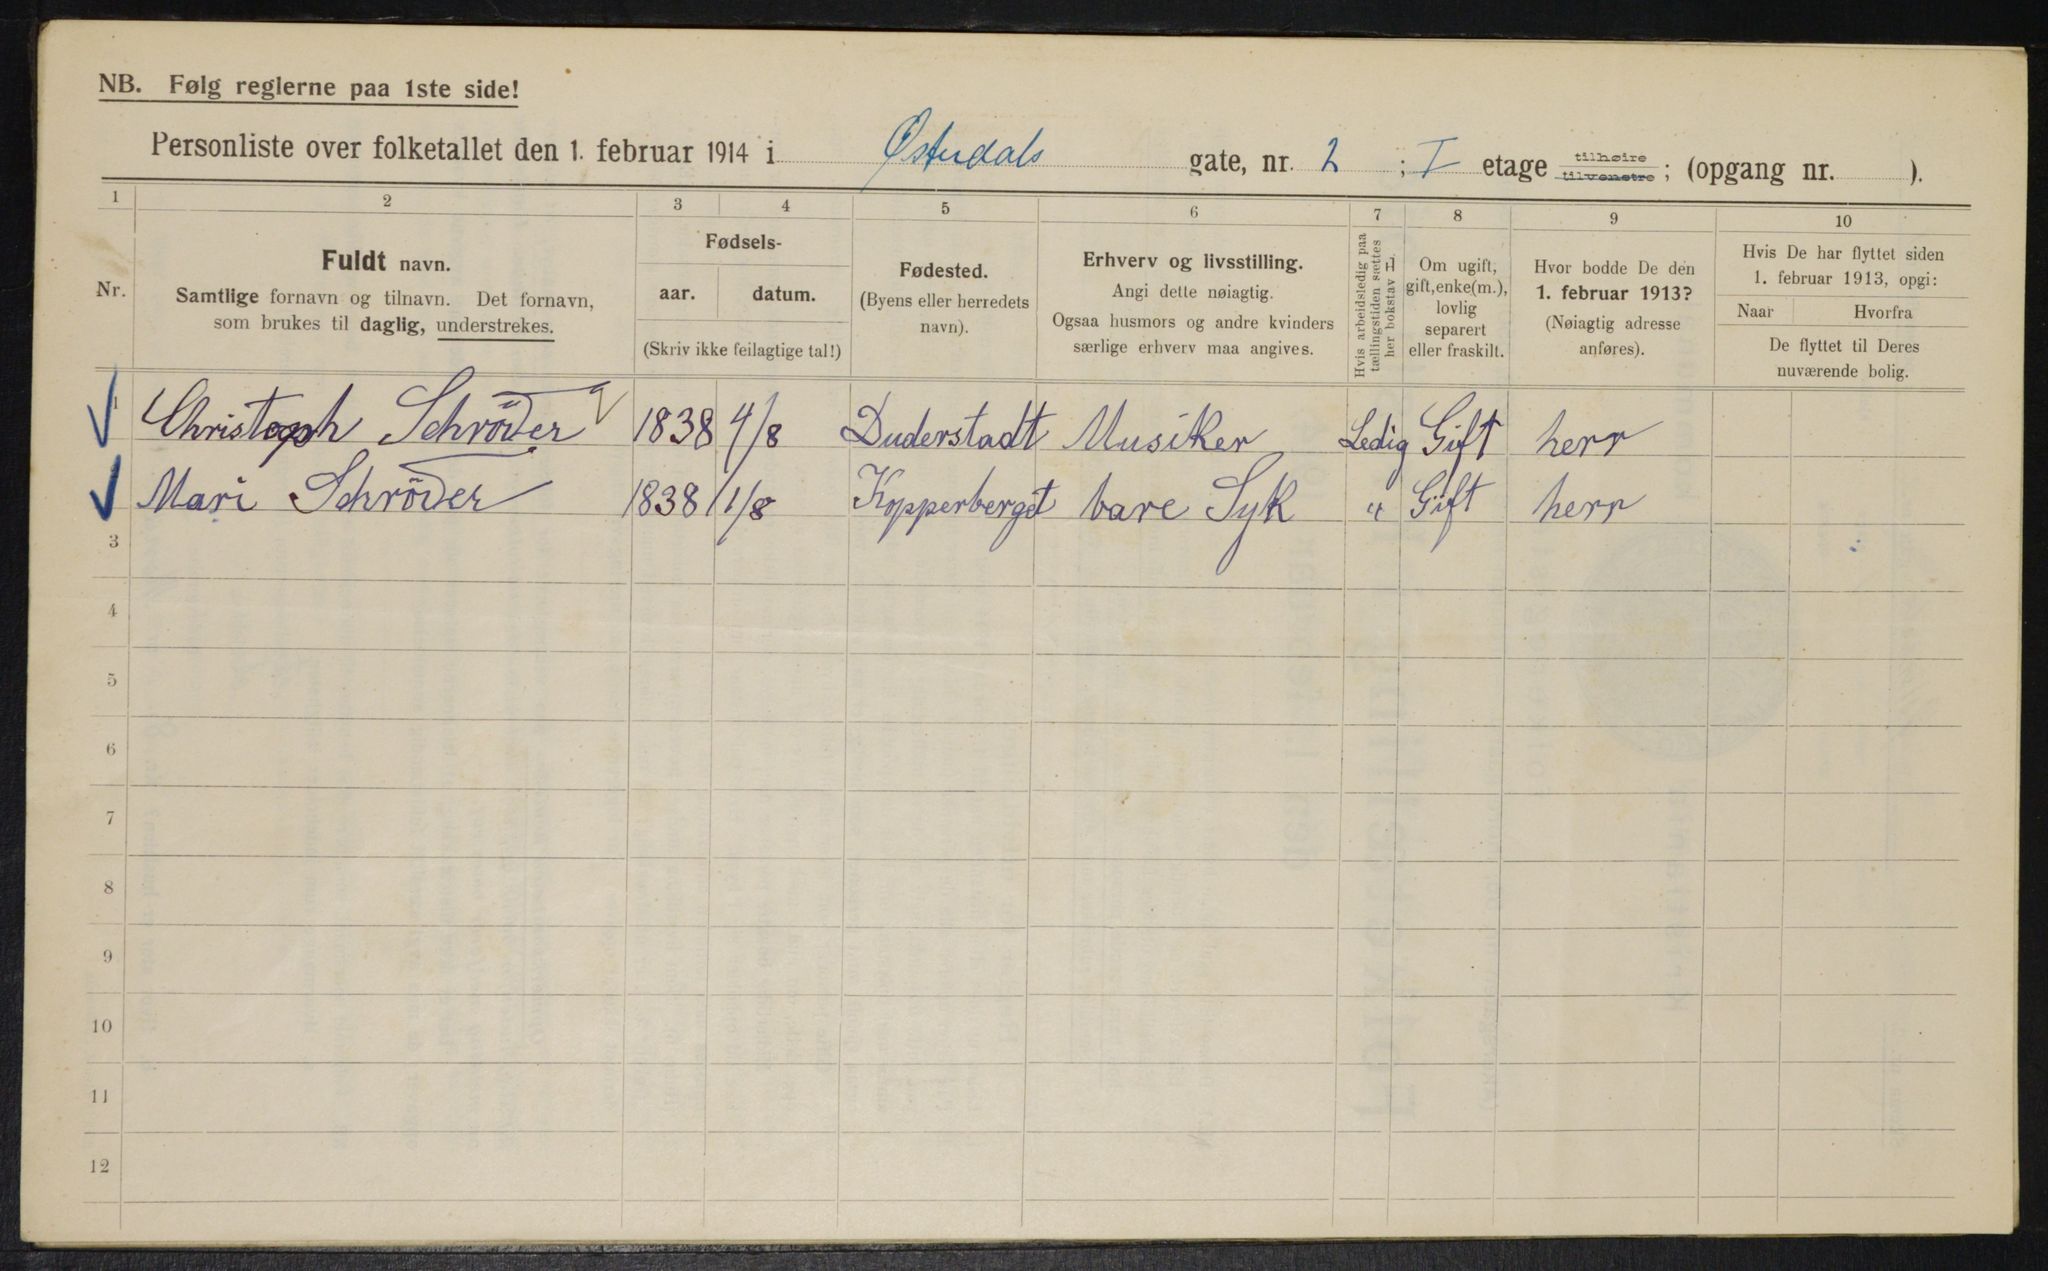 NB. Følg reglerne paa 1ste side!
Personliste over folketallet den 1. februar 1914 i Østerdals gate, nr. 2 ; I etage tilhøire tilvenstre ; (opgang nr. ).
1 2 3 4 5 6 7 8 9 10
Nr.
Fuldt navn.
Samtlige fornavn og tilnavn. Det fornavn,
som brukes til daglig, understrekes.
Fødsels-
aar. datum.
(Skriv ikke feilagtige tal!)
Fødested.
(Byens eller herredets
navn).
Erhverv og livsstilling.
Angi dette nøiagtig.
Ogsaa husmors og andre kvinders
særlige erhverv maa angives.
Hvis arbeidsledig paa
tællingstiden sættes
her bokstav L.
Om ugift,
gift, enke(m.),
lovlig
separert
eller fraskilt.
Hvor bodde De den
1. februar 1913?
(Nøiagtig adresse
anføres).
Hvis De har flyttet siden
1. februar 1913, opgi:
Naar Hvorfra
De flyttet til Deres
nuværende bolig.
1 Christoph Schröder 1838 4/8 Duderstadt Musiker Ledig Gift herr
Mari Schröder 1838 1/8 Kopperberget bare Syk " Gift herr
3
4
5
6
7
8
9
10
11
12